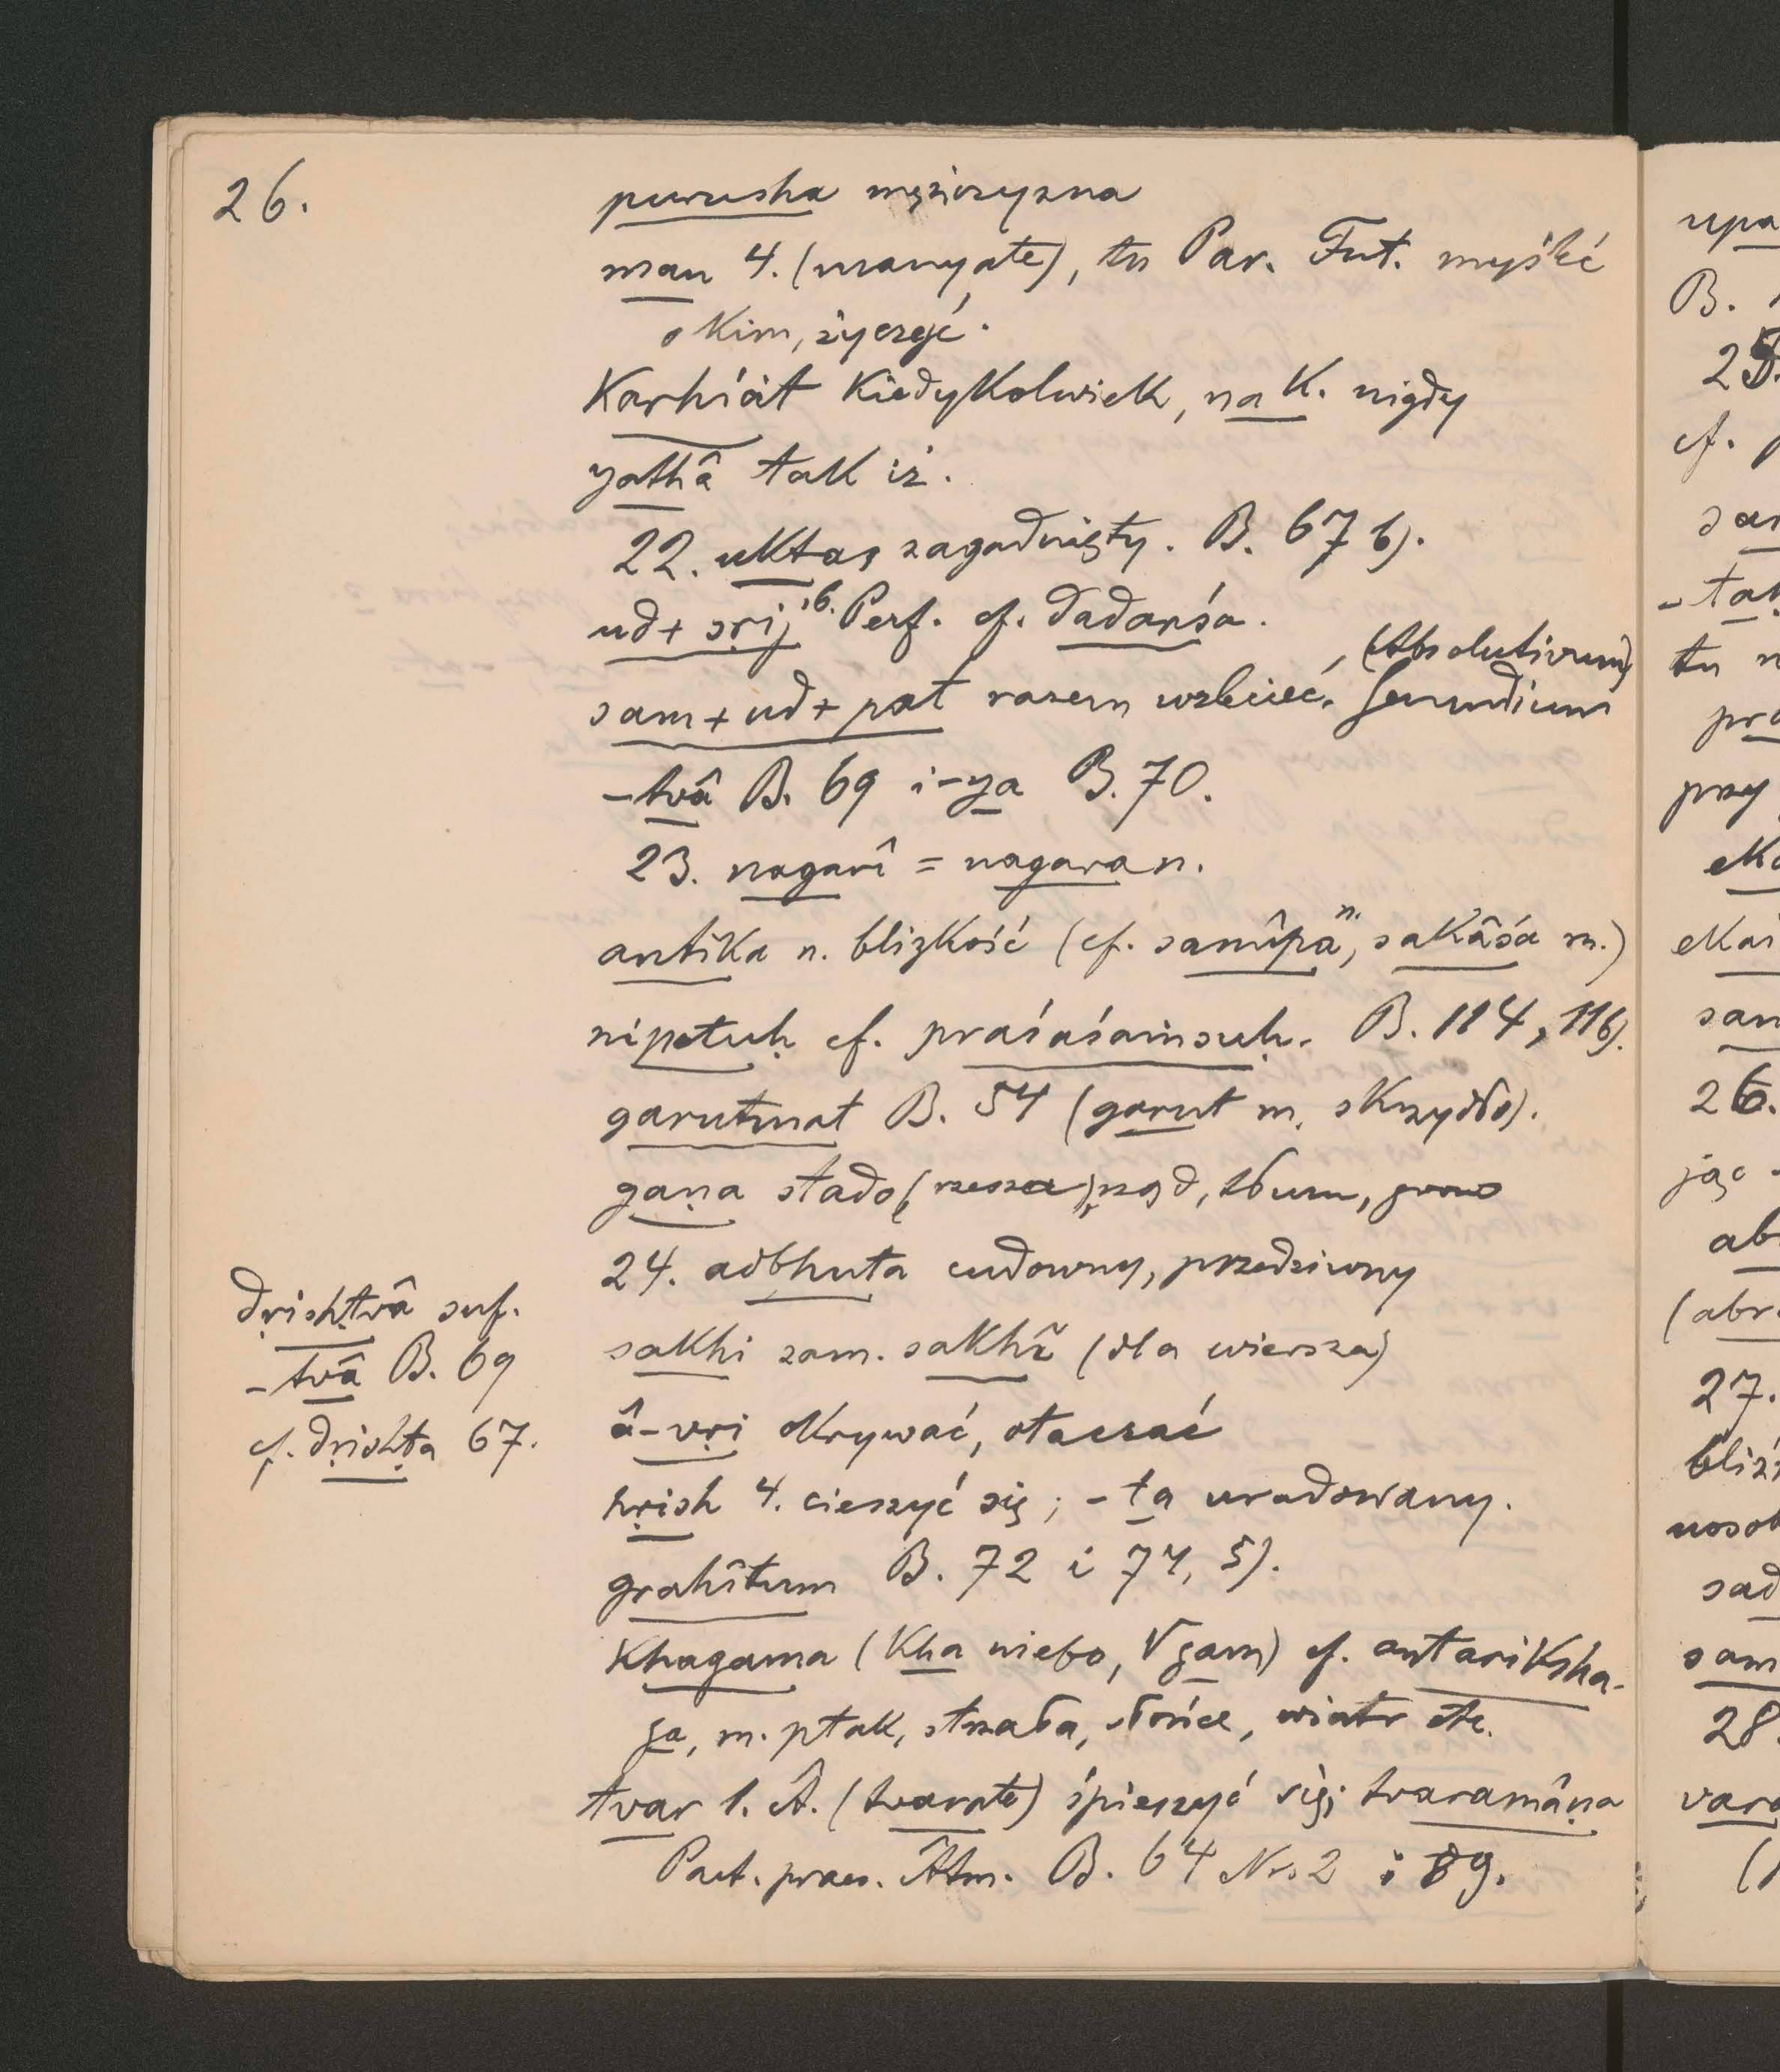 26.
purusha mężczyzna
man 4. (manyate), tu Par. Fut. myśleć
o kim, życzyć.
Karhićit Kiedykolwiek, na K. nigdy
yathâ tak iż.
22. uktas zagadnięty. B. 67 b).
ud + sṛij 6. Perf. cf. dadarśa.
sam + ud + pat razem wzlecieć, (Absolutivum)
Gerundium
-tvâ B. 69 i -ya B. 70.
23. nagarî = nagara n.
antika n. blizkość (cf. samîpa n., sakâśa m.)
nipetuḥ cf. praśaśaṁsuḥ. B. 114, 116).
garutmat B. 54 (garut m. skrzydło).
gaṇa stado (rzesza), rząd, tłum, grono
24. adbhuta cudowny, przedziwny
sakhi zam. sakhî (dla wiersza)
dṛishṭvâ suf.
-tvâ B. 69
cf. dṛishṭa 67.
â-vṛi okrywać, otaczać
hṛish 4. cieszyć się; -ta uradowany.
grahîtum B. 72 i 74, 5).
Khagama (Kha niebo, √gam) cf. antariksha-
ga, m. ptak, strzała, słońce, wiatr etc.
tvar 1. Â. (tvarate) śpieszyć się; tvaramâṇa
Part. praes. Âtm. B. 64 Nr. 2 i 89.
upa
B.
25.
cf.
tu
przy
26.
jąc
ab
27.
28.